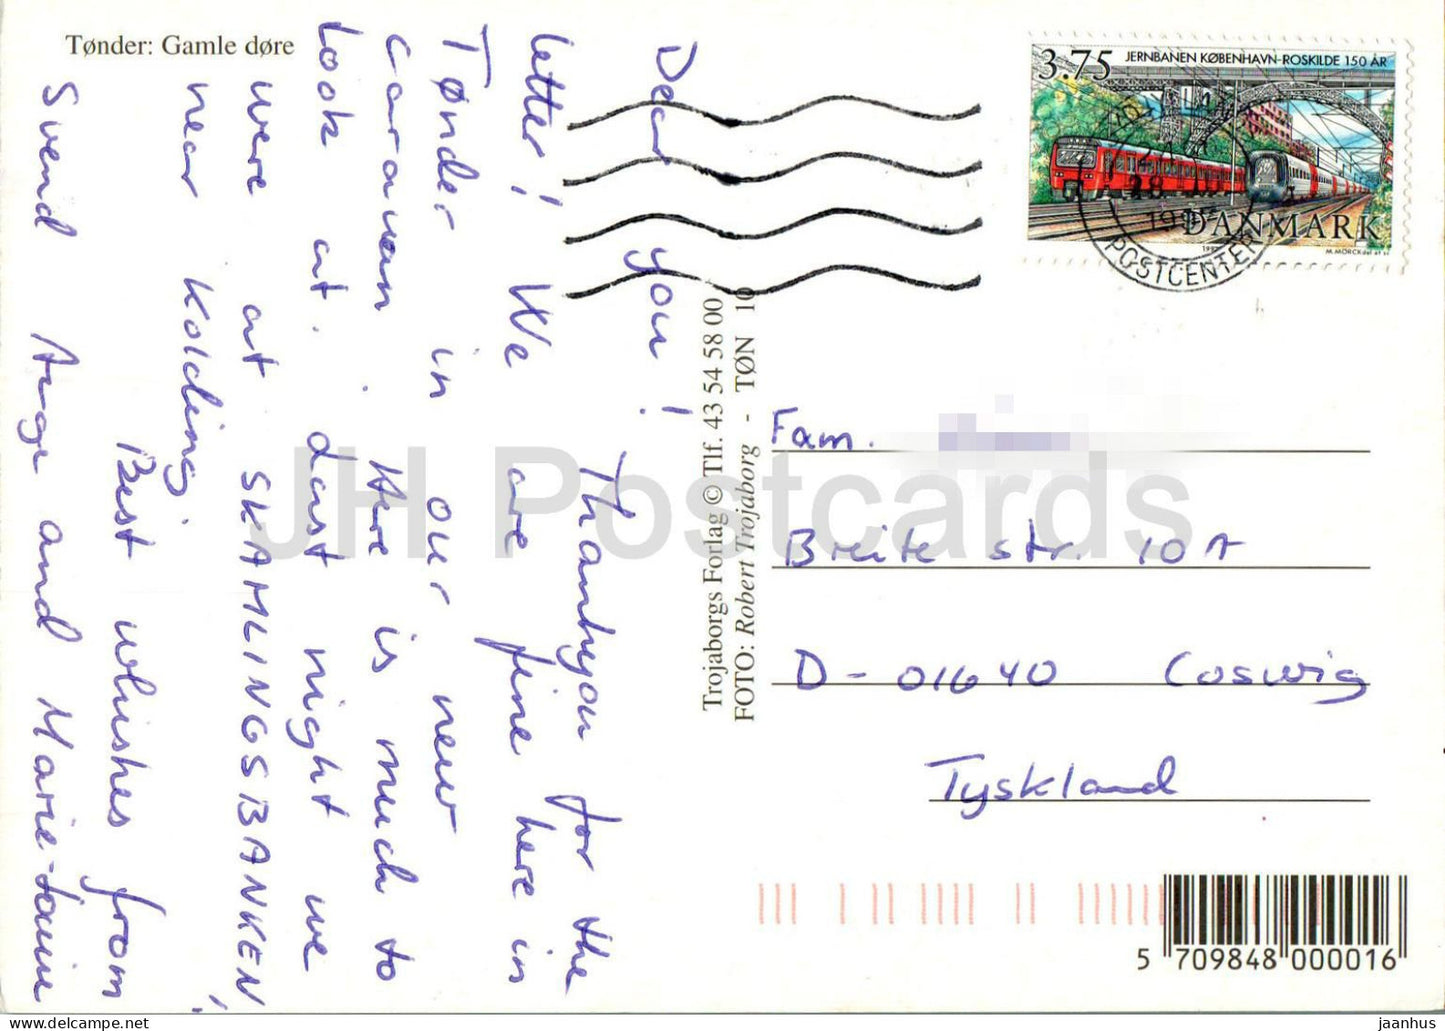 Tønder: Gamle døre
Dear you!
Thankyou for the
letter! We are fine here in
Tønder in our new
caravan. Here is much to
look at. Last night we
were at SKAMLINGSBANKEN,
near Kolding
Best whishes from
Svend Aage and Marie-
Trojaborgs Forlag © Tlf. 43 54 58 00
FOTO: Robert Trojaborg - TØN 10
3.75 JERNBANEN KØBENHAVN-ROSKILDE 150 ÅR
DANMARK
M. MÖRCK del et sc
POSTCENTER
Fam.
Breite str. 10A
D-01640 Coswig
Tyskland
5 709848 000016
JH Postcards
jaanhus @ delcampe.net